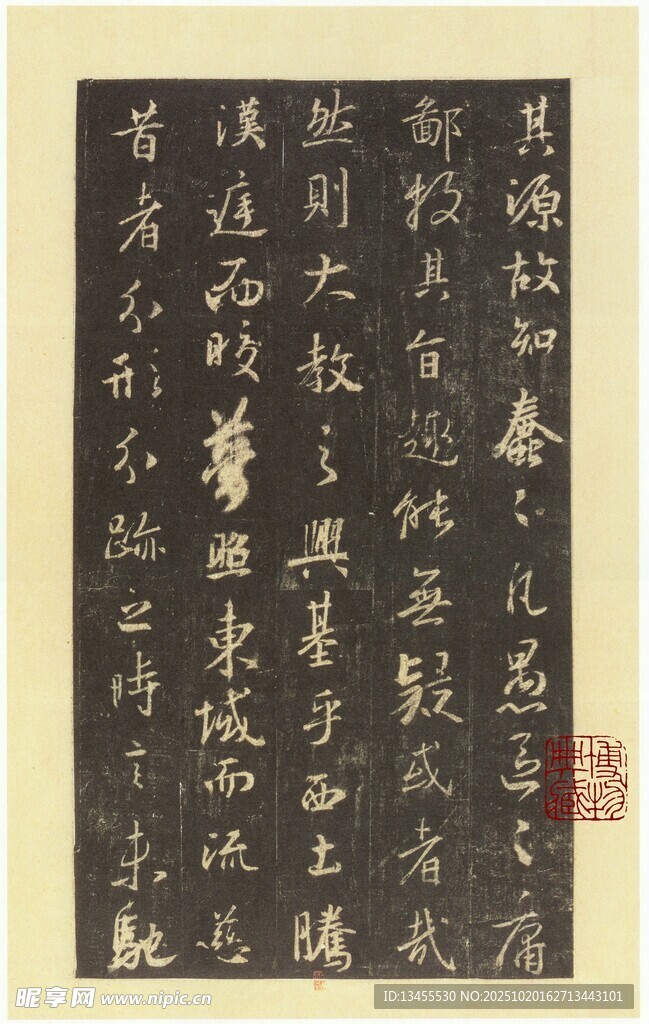 其源故知蠢々凡愚區々庸
鄙投其旨趣能無疑或者哉
然則大教之興基乎西土騰
漢遅而晈夢照東域而流慈
昔者分形分跡之時言未馳
博物典藏
昵享网 www.nipic.cn
ID:13455530 NO:20251020162713443101